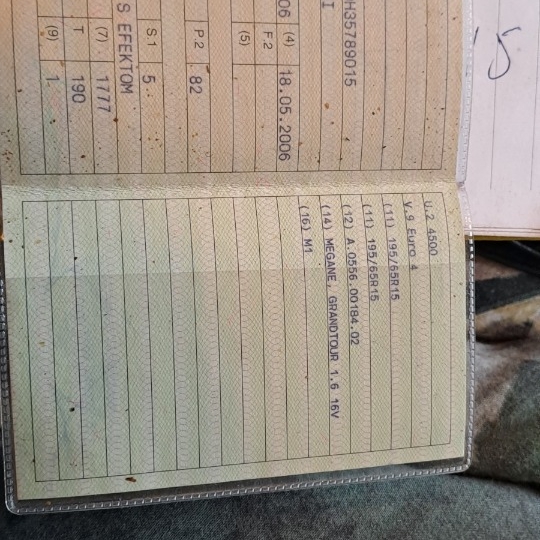 H35789015
I
06 (4) 18.05.2006
F.2
(5)
P.2 82
S 1 5
S EFEKTOM
(7) 1777
T 190
(9) 1
U.2 4500
V.9 Euro 4
(11) 195/65R15
(11) 195/65R15
(12) A.0556.00184.02
(14) MEGANE, GRANDTOUR 1.6 16V
(16) M1